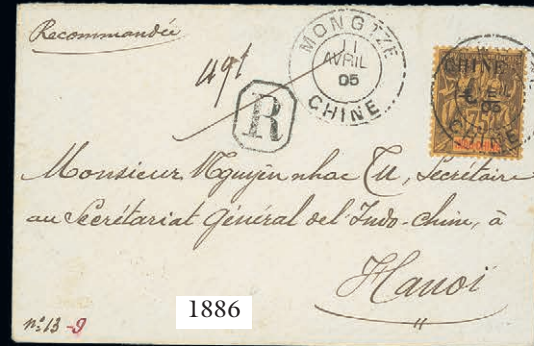 Recommandée
491
MONGTZE
11
AVRIL
05
CHINE
R
CHINE
05
CHINE
75
Monsieur Nguyên nhac Tu, Secrétaire
au Secrétariat Général de l'Indo-Chine, à
Hanoï
1886
nº 13 - 9